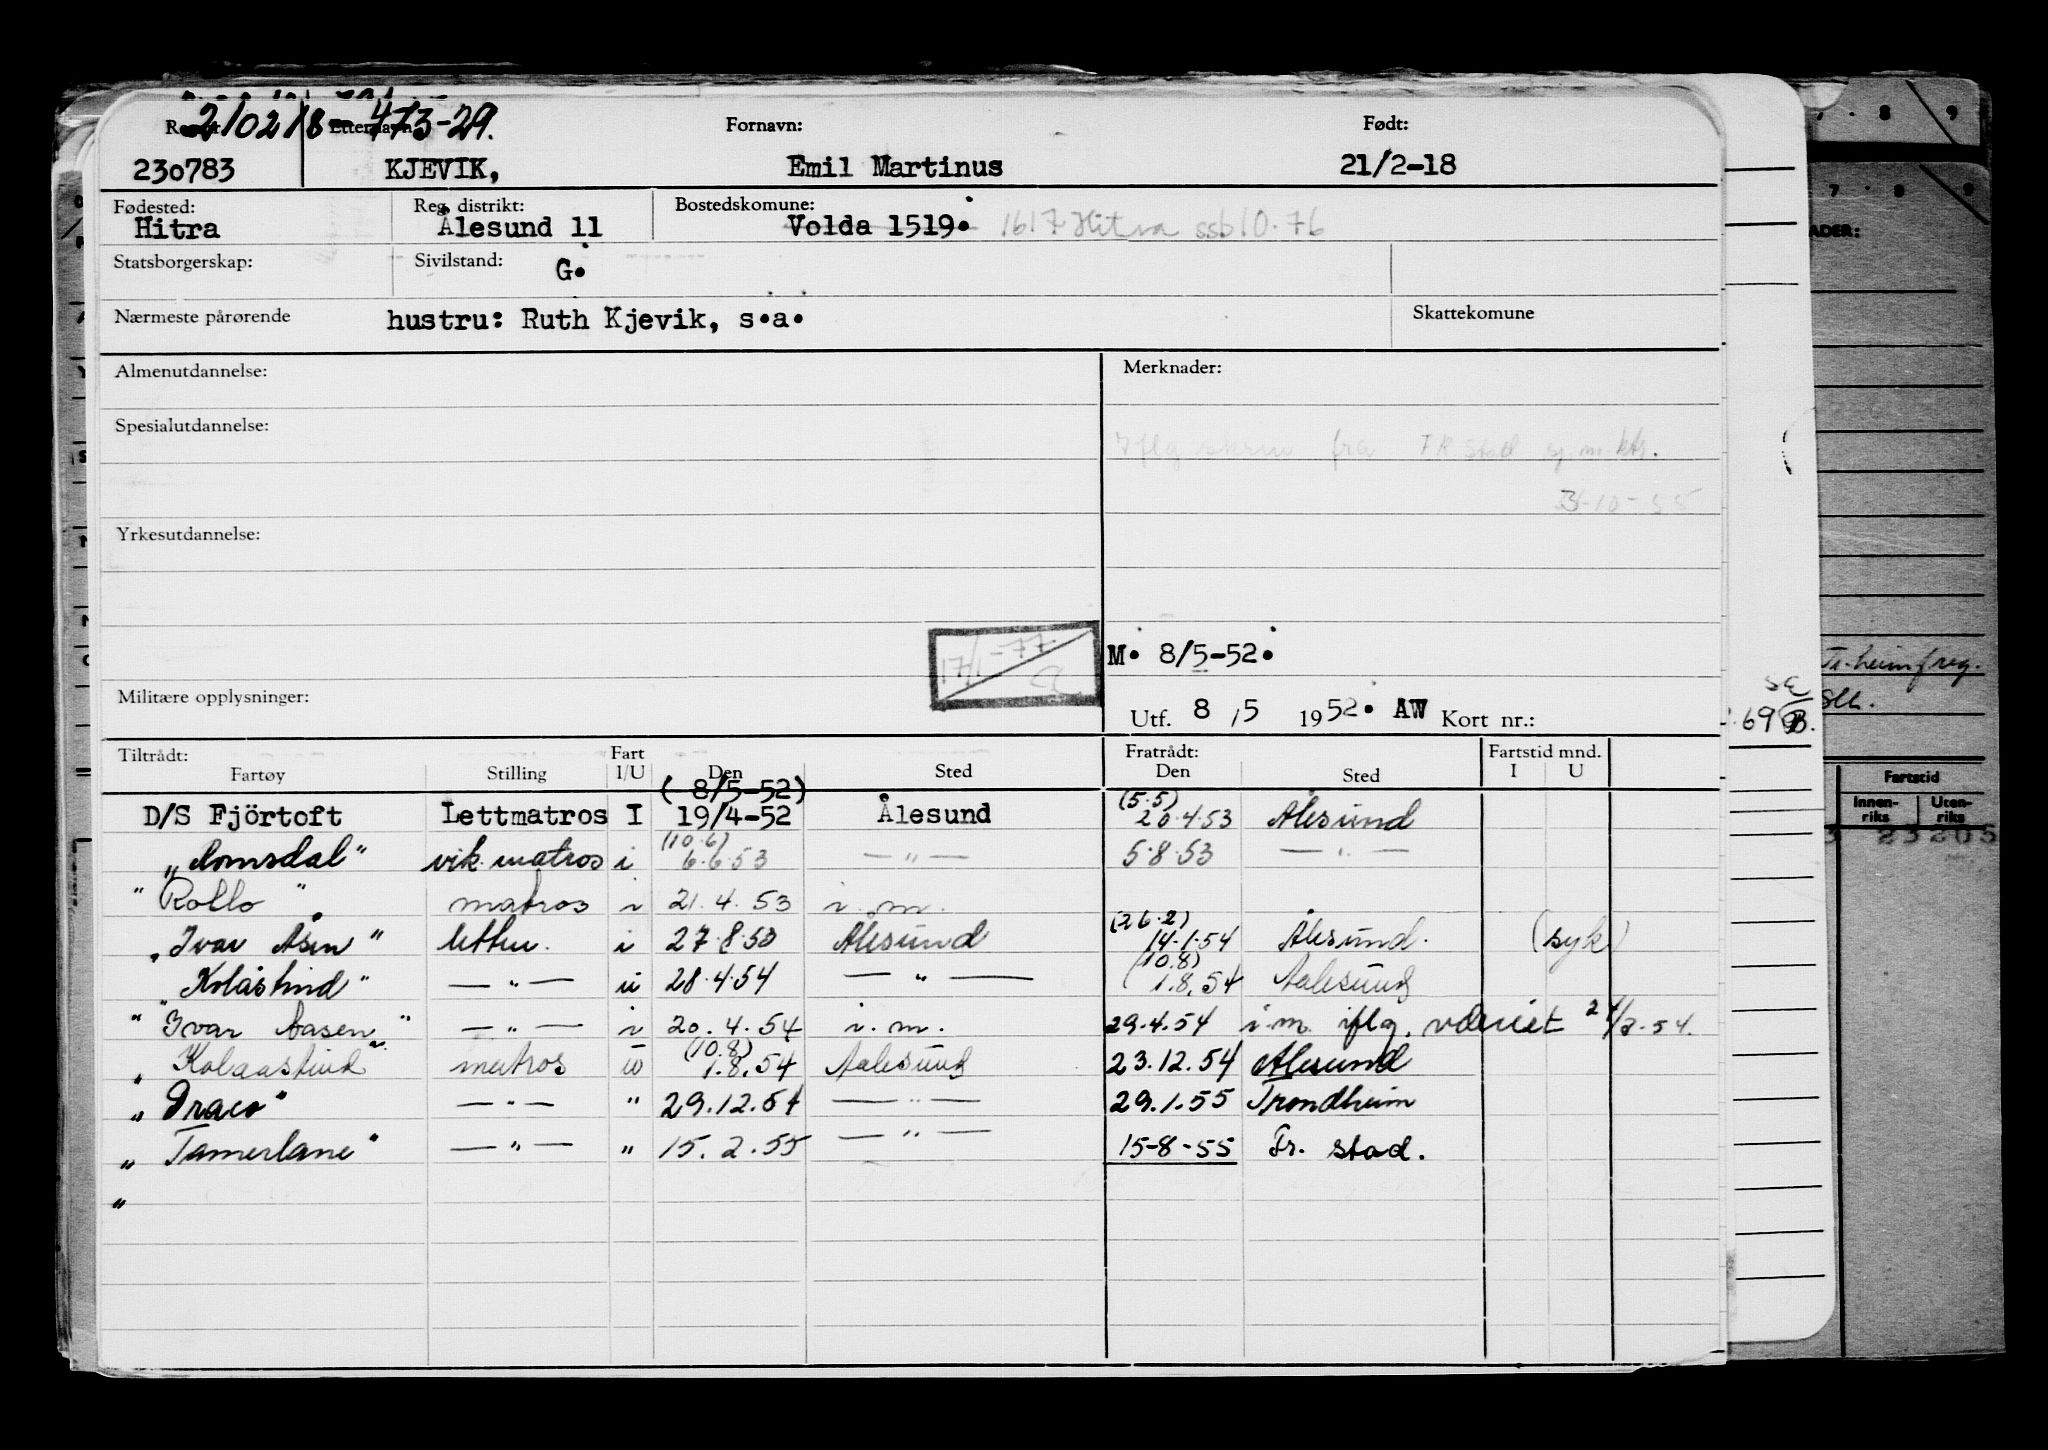 210218-473-29.
Fornavn: Født:
230783 KJEVIK, Emil Martinus 21/2-18
Fødested: Reg. distrikt: Bostedskomune:
Hitra Ålesund 11 Volda 1519. 1617 Hitra ssb 10.76
Statsborgerskap: Sivilstand: G.
Nærmeste pårørende hustru: Ruth Kjevik, s.a. Skattekomune
Almenutdannelse: Merknader:
Spesialutdannelse:
Iflg skriv fra FR stad sj.m.ktr.
31-10-55
Yrkesutdannelse:
17/1-77
M. 8/5-52.
Militære opplysninger: Utf. 8/5 1952. AW Kort nr.:
Tiltrådt: Fart Fratrådt: Fartstid mnd.
Fartøy Stilling I/U Den Sted Den Sted I U
(8/5-52) (5.5)
D/S Fjörtoft Lettmatros I 19/4-52 Ålesund 20.4.53 Ålesund
(10.6)
„Romsdal" vik. matros i 6.6.53 — " — 5.8.53 — " —
" Rollo " matros i 21.4.53 i.m.
(26.2)
„Ivar Åsen" lettm. i 27.8.53 Ålesund 14.1.54 Ålesund. (syk)
(10.8)
„Kolåstind" — " — u 28.4.54 — " — 1.8.54 Aalesund
" Ivar Aasen " — " — i 20.4.54 i.m. 29.4.54 i.m. iflg.
(10.8)
„ Kolaastind " matros u 1.8.54 Aalesund 23.12.54 Ålesund
„ Draco" — " — " 29.12.54 — " — 29.1.55 Trondheim
„ Tamerlane" — " — " 15.2.55 — " — 15-8-55 Fr. stad.
„